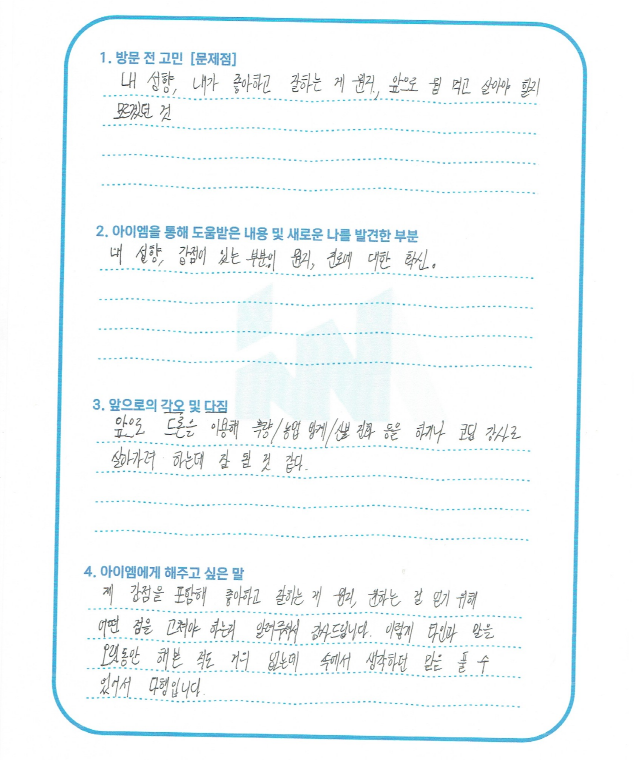 1. 방문 전 고민 [문제점]
내 성향, 내가 좋아하고 잘하는 게 뭔지, 앞으로 뭘 먹고 살아야 할지
모르겠던 것
2. 아이엠을 통해 도움받은 내용 및 새로운 나를 발견한 부분
내 성향, 강점이 있는 부분이 뭔지, 진로에 대한 확신.
3. 앞으로의 각오 및 다짐
앞으로 드론을 이용해 측량/농업 방제/산불 진화 등을 하거나 코딩 강사로
살아가려 하는데 잘 될 것 같다.
4. 아이엠에게 해주고 싶은 말
제 강점을 포함해 좋아하고 잘하는 게 뭔지, 원하는 걸 얻기 위해
어떤 점을 고쳐야 하는지 알려주셔서 감사드립니다. 이렇게 타인과 말을
오랫동안 해본 적도 거의 없는데 속에서 생각하던 말을 풀 수
있어서 다행입니다.